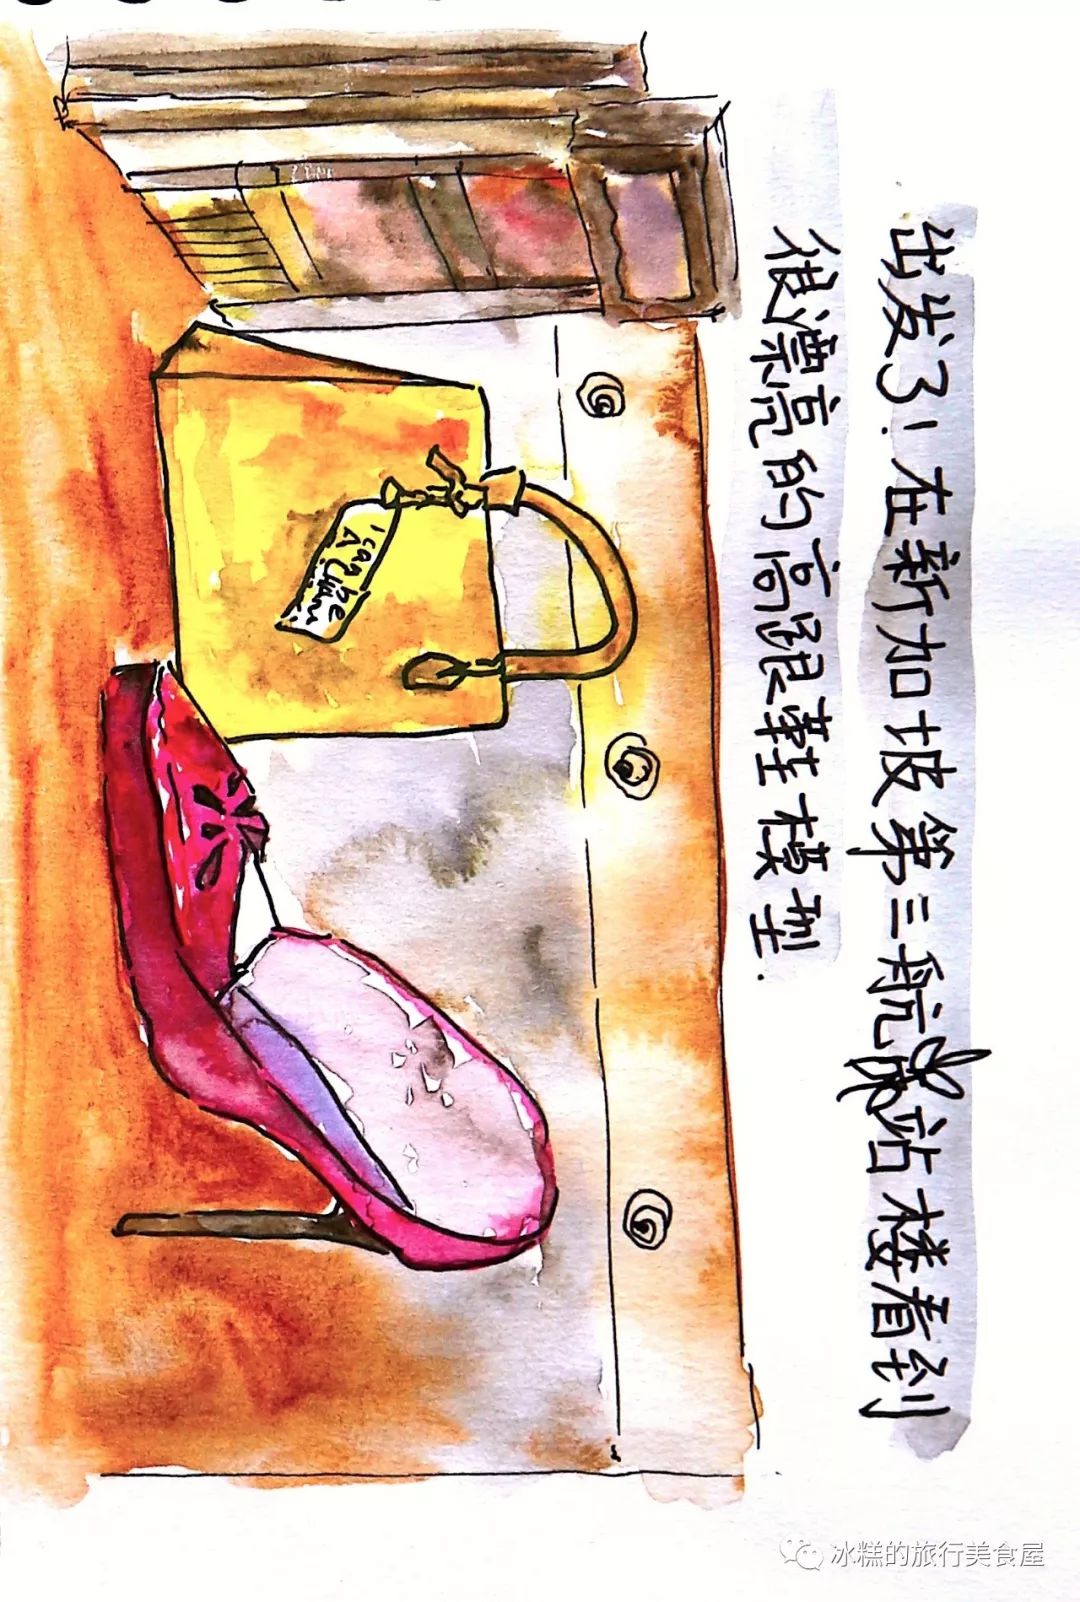 出发了！在新加坡第三航站楼看到
很漂亮的高跟鞋模型.
I can be
冰糕的旅行美食屋